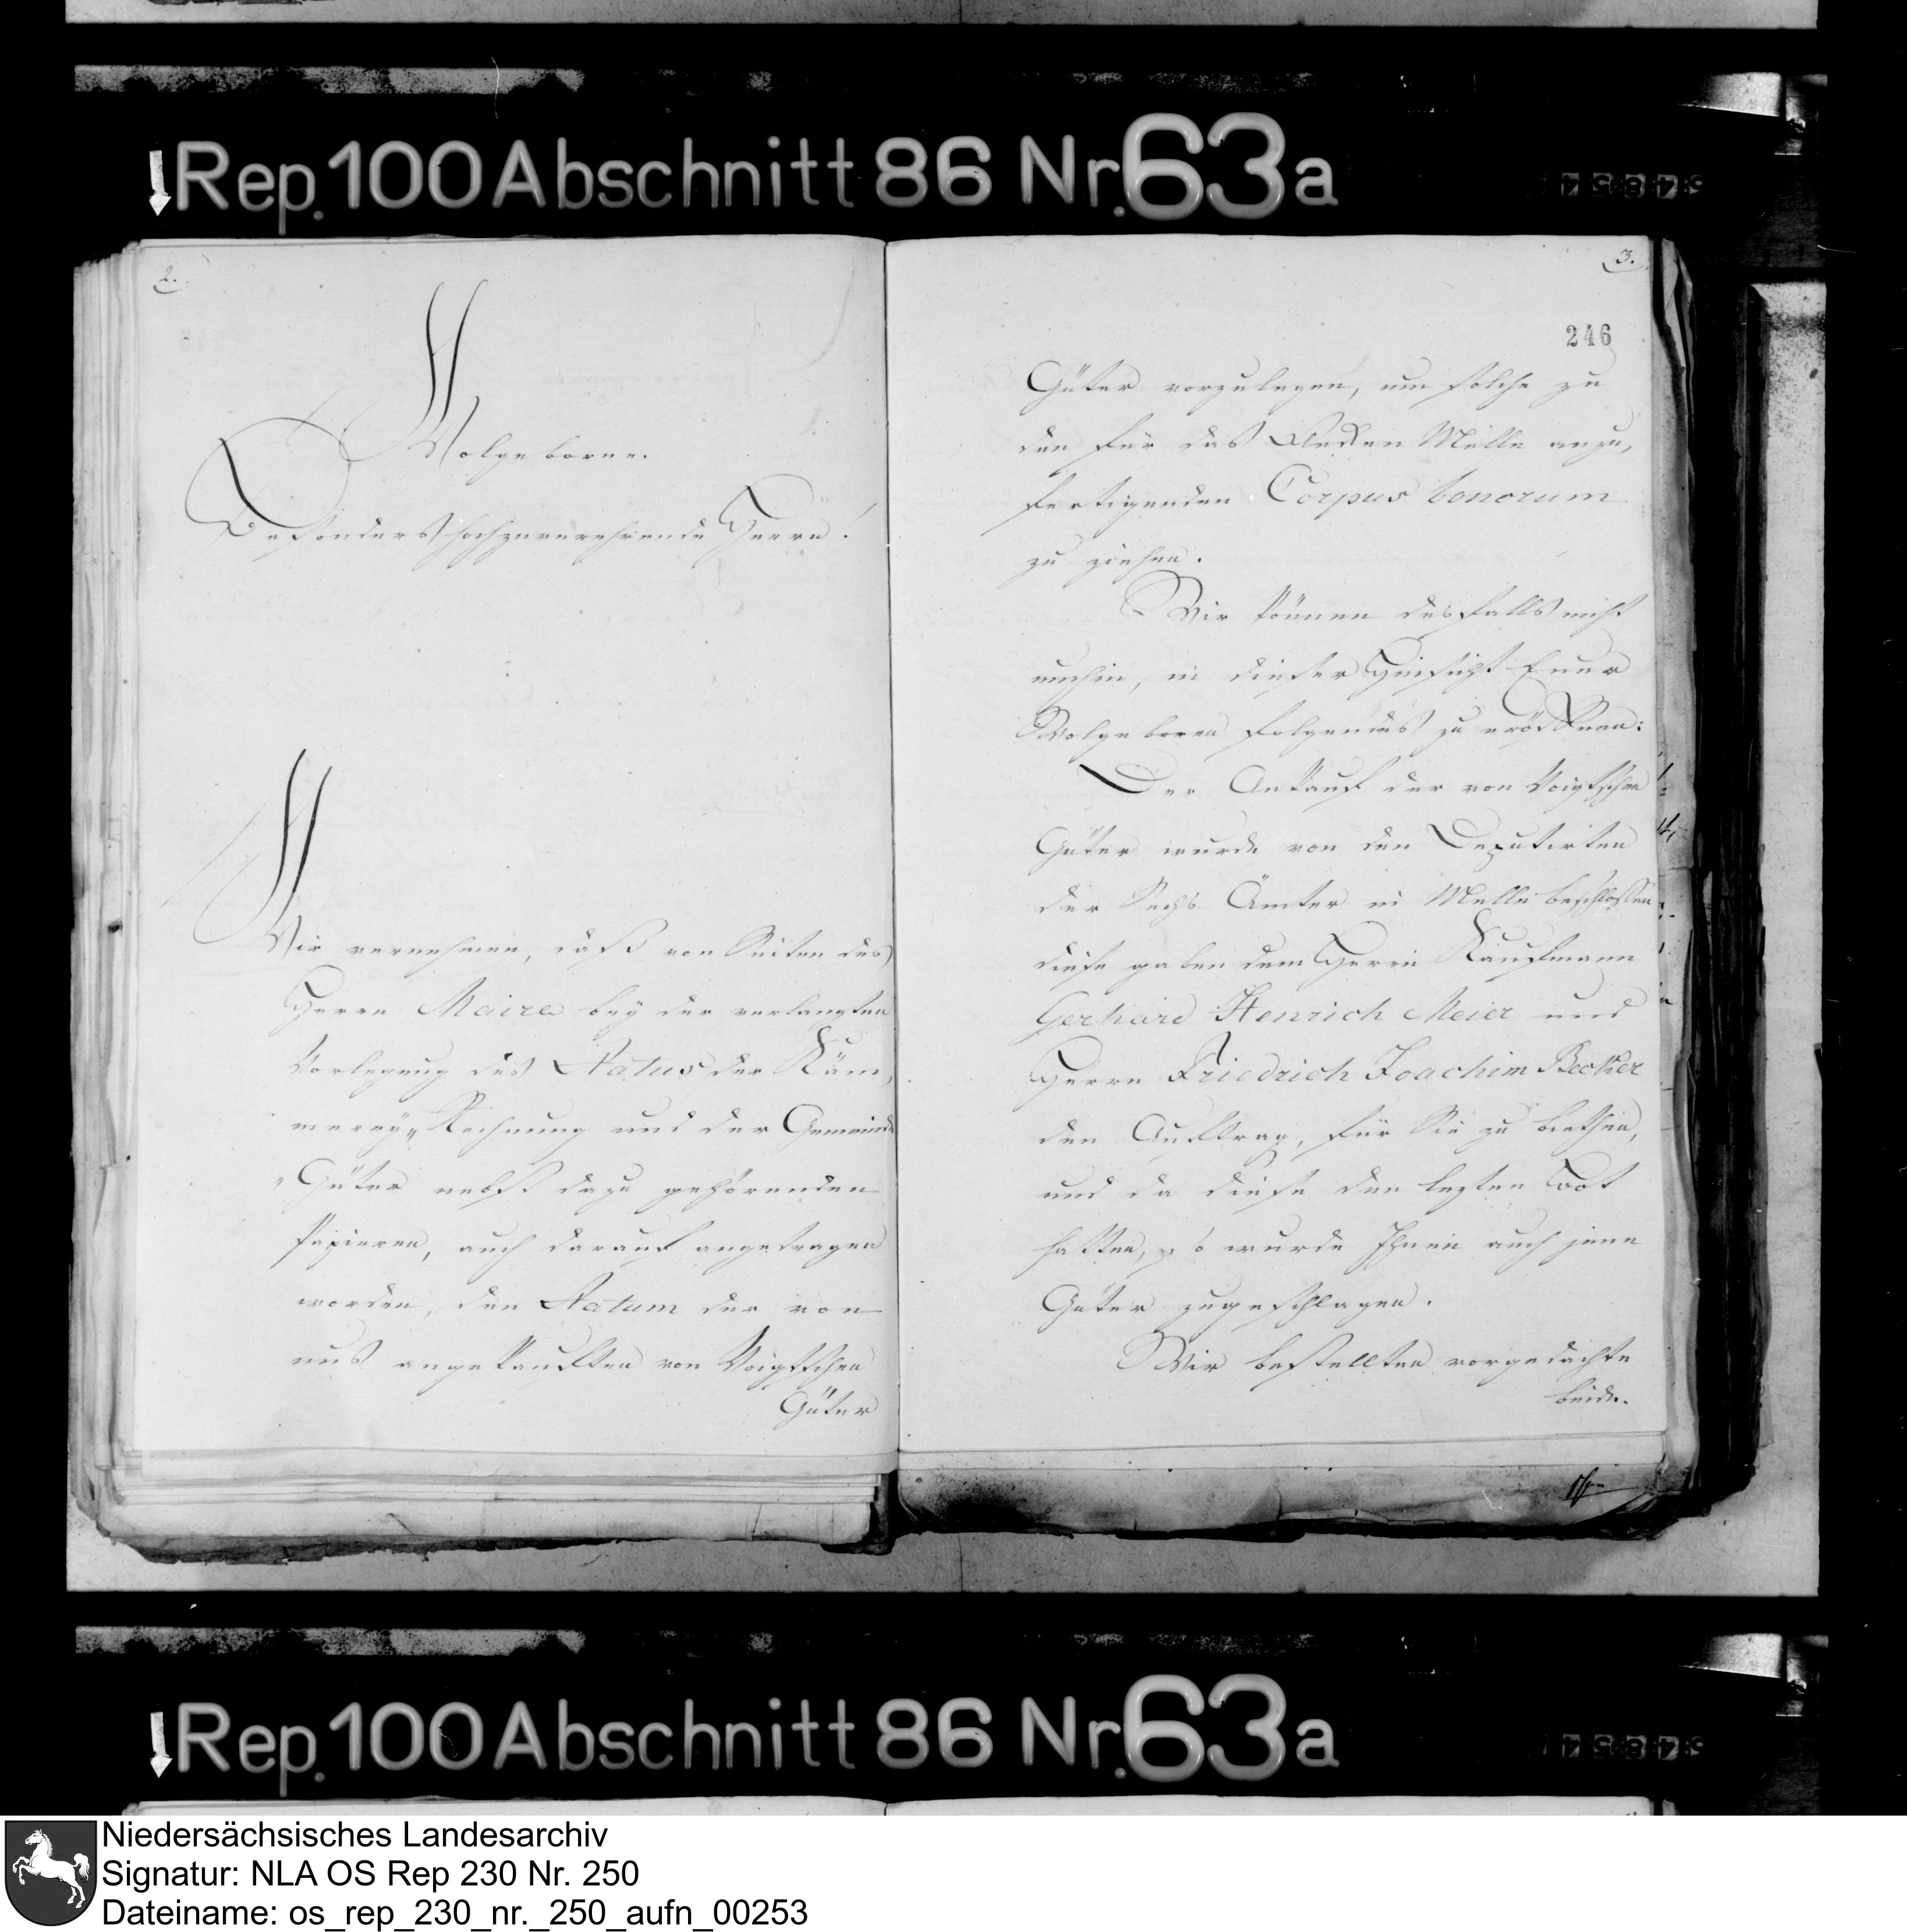 Rep. 100 Abschnitt 86 Nr. 63a
2.
Wolgeborne.
Besonders hochzuverehrende Herrn!
Wir vernehmen, daß von Seiten des
Herrn Maire bey der verlangten
Vorlegung des Status der Käm,
merey„Rechnung und der Gemeinde
„Güter nebst dazu gehörenden
Papieren, auch darauf angetragen
worden, den Statum der von
uns angekauften von Voigtschen
Güter
3.
246
Güter vorzulegen, um solche zu
den für das Flecken Melle anzu,
fertigenden Corpus bonorum
zu ziehen.
Wir können desfalls nicht
umhin, in dieser Hinsicht Euer
Wolgeboren folgendes zu eröffnen:
Der Ankauf der von Voigtschen
Güter wurde von den Deputirten
der Sechs Ämter in Melle beschlossen
diese gaben dem Herrn Kaufmann
Gerhard Henrich Meier und
Herrn Friedrich Joachim Becker
den Auftrag, für Sie zu biethen,
und da diese den lezten Bot
hatten, so wurde Ihnen auch jene
Güter zugeschlagen.
Wir bestellten vorgedachte
beide.
Rep. 100 Abschnitt 86 Nr. 63a
Niedersächsisches Landesarchiv
Signatur: NLA OS Rep 230 Nr. 250
Dateiname: os_rep_230_nr._250_aufn_00253